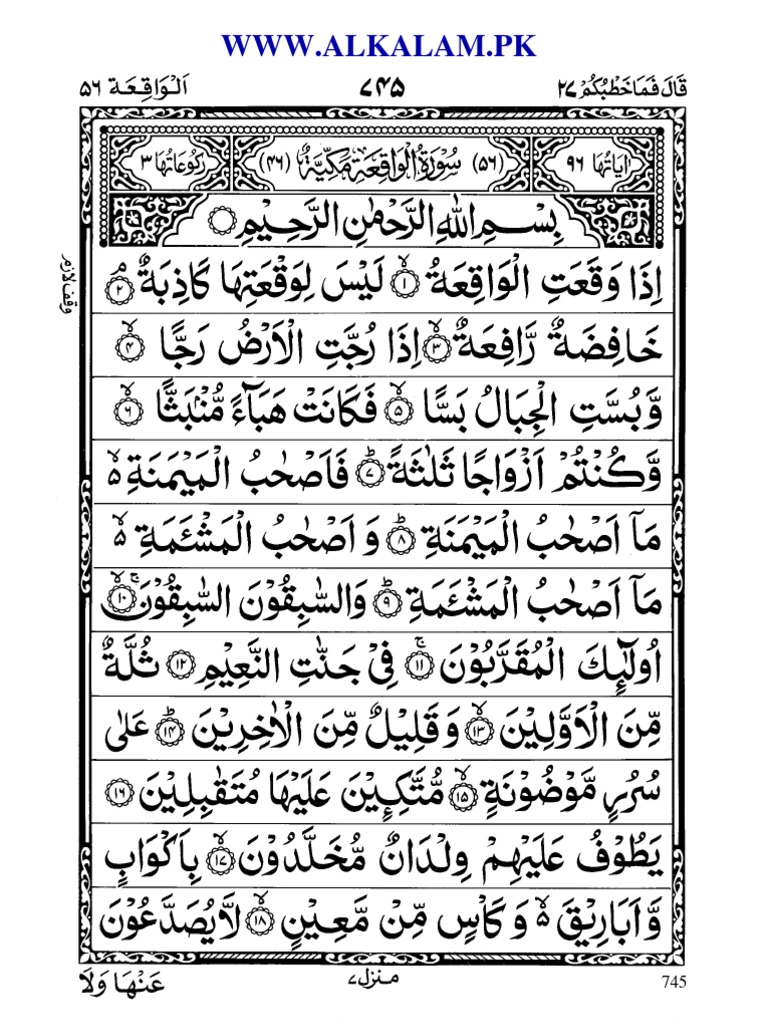 WWW.ALKALAM.PK
قَالَ فَمَا خَطْبُكُمْ ٢٧ ٧٤٥ اَلْوَاقِعَة ٥٦
اٰيَاتُهَا ٩٦ (٥٦) سُوْرَةُ الْوَاقِعَةِ مَكِّيَّةٌ (٤٦) رُكُوْعَاتُهَا ٣
بِسْمِ اللّٰهِ الرَّحْمٰنِ الرَّحِيْمِ
اِذَا وَقَعَتِ الْوَاقِعَةُ ۙ﴿١﴾ لَيْسَ لِوَقْعَتِهَا كَاذِبَةٌ ۘ﴿٢﴾
وقف لازم
خَافِضَةٌ رَّافِعَةٌ ۙ﴿٣﴾ اِذَا رُجَّتِ الْاَرْضُ رَجًّا ۙ﴿٤﴾
وَّبُسَّتِ الْجِبَالُ بَسًّا ۙ﴿٥﴾ فَكَانَتْ هَبَآءً مُّنْۢبَثًّا ۙ﴿٦﴾
وَّكُنْتُمْ اَزْوَاجًا ثَلٰثَةً ؕ﴿٧﴾ فَاَصْحٰبُ الْمَيْمَنَةِ ۙ۬
مَاۤ اَصْحٰبُ الْمَيْمَنَةِ ؕ﴿٨﴾ وَ اَصْحٰبُ الْمَشْـَٔمَةِ ۙ۬
مَاۤ اَصْحٰبُ الْمَشْـَٔمَةِ ؕ﴿٩﴾ وَالسّٰبِقُوْنَ السّٰبِقُوْنَ ۚۙ﴿١٠﴾
اُولٰٓئِكَ الْمُقَرَّبُوْنَ ۚ﴿١١﴾ فِيْ جَنّٰتِ النَّعِيْمِ ﴿١٢﴾ ثُلَّةٌ
مِّنَ الْاَوَّلِيْنَ ۙ﴿١٣﴾ وَ قَلِيْلٌ مِّنَ الْاٰخِرِيْنَ ؕ﴿١٤﴾ عَلٰى
سُرُرٍ مَّوْضُوْنَةٍ ۙ﴿١٥﴾ مُّتَّكِـِٕيْنَ عَلَيْهَا مُتَقٰبِلِيْنَ ﴿١٦﴾
يَطُوْفُ عَلَيْهِمْ وِلْدَانٌ مُّخَلَّدُوْنَ ۙ﴿١٧﴾ بِاَكْوَابٍ
وَّ اَبَارِيْقَ ۙ۬ وَ كَاْسٍ مِّنْ مَّعِيْنٍ ۙ﴿١٨﴾ لَّا يُصَدَّعُوْنَ
عَنْهَا وَلَا منزل ٧ 745